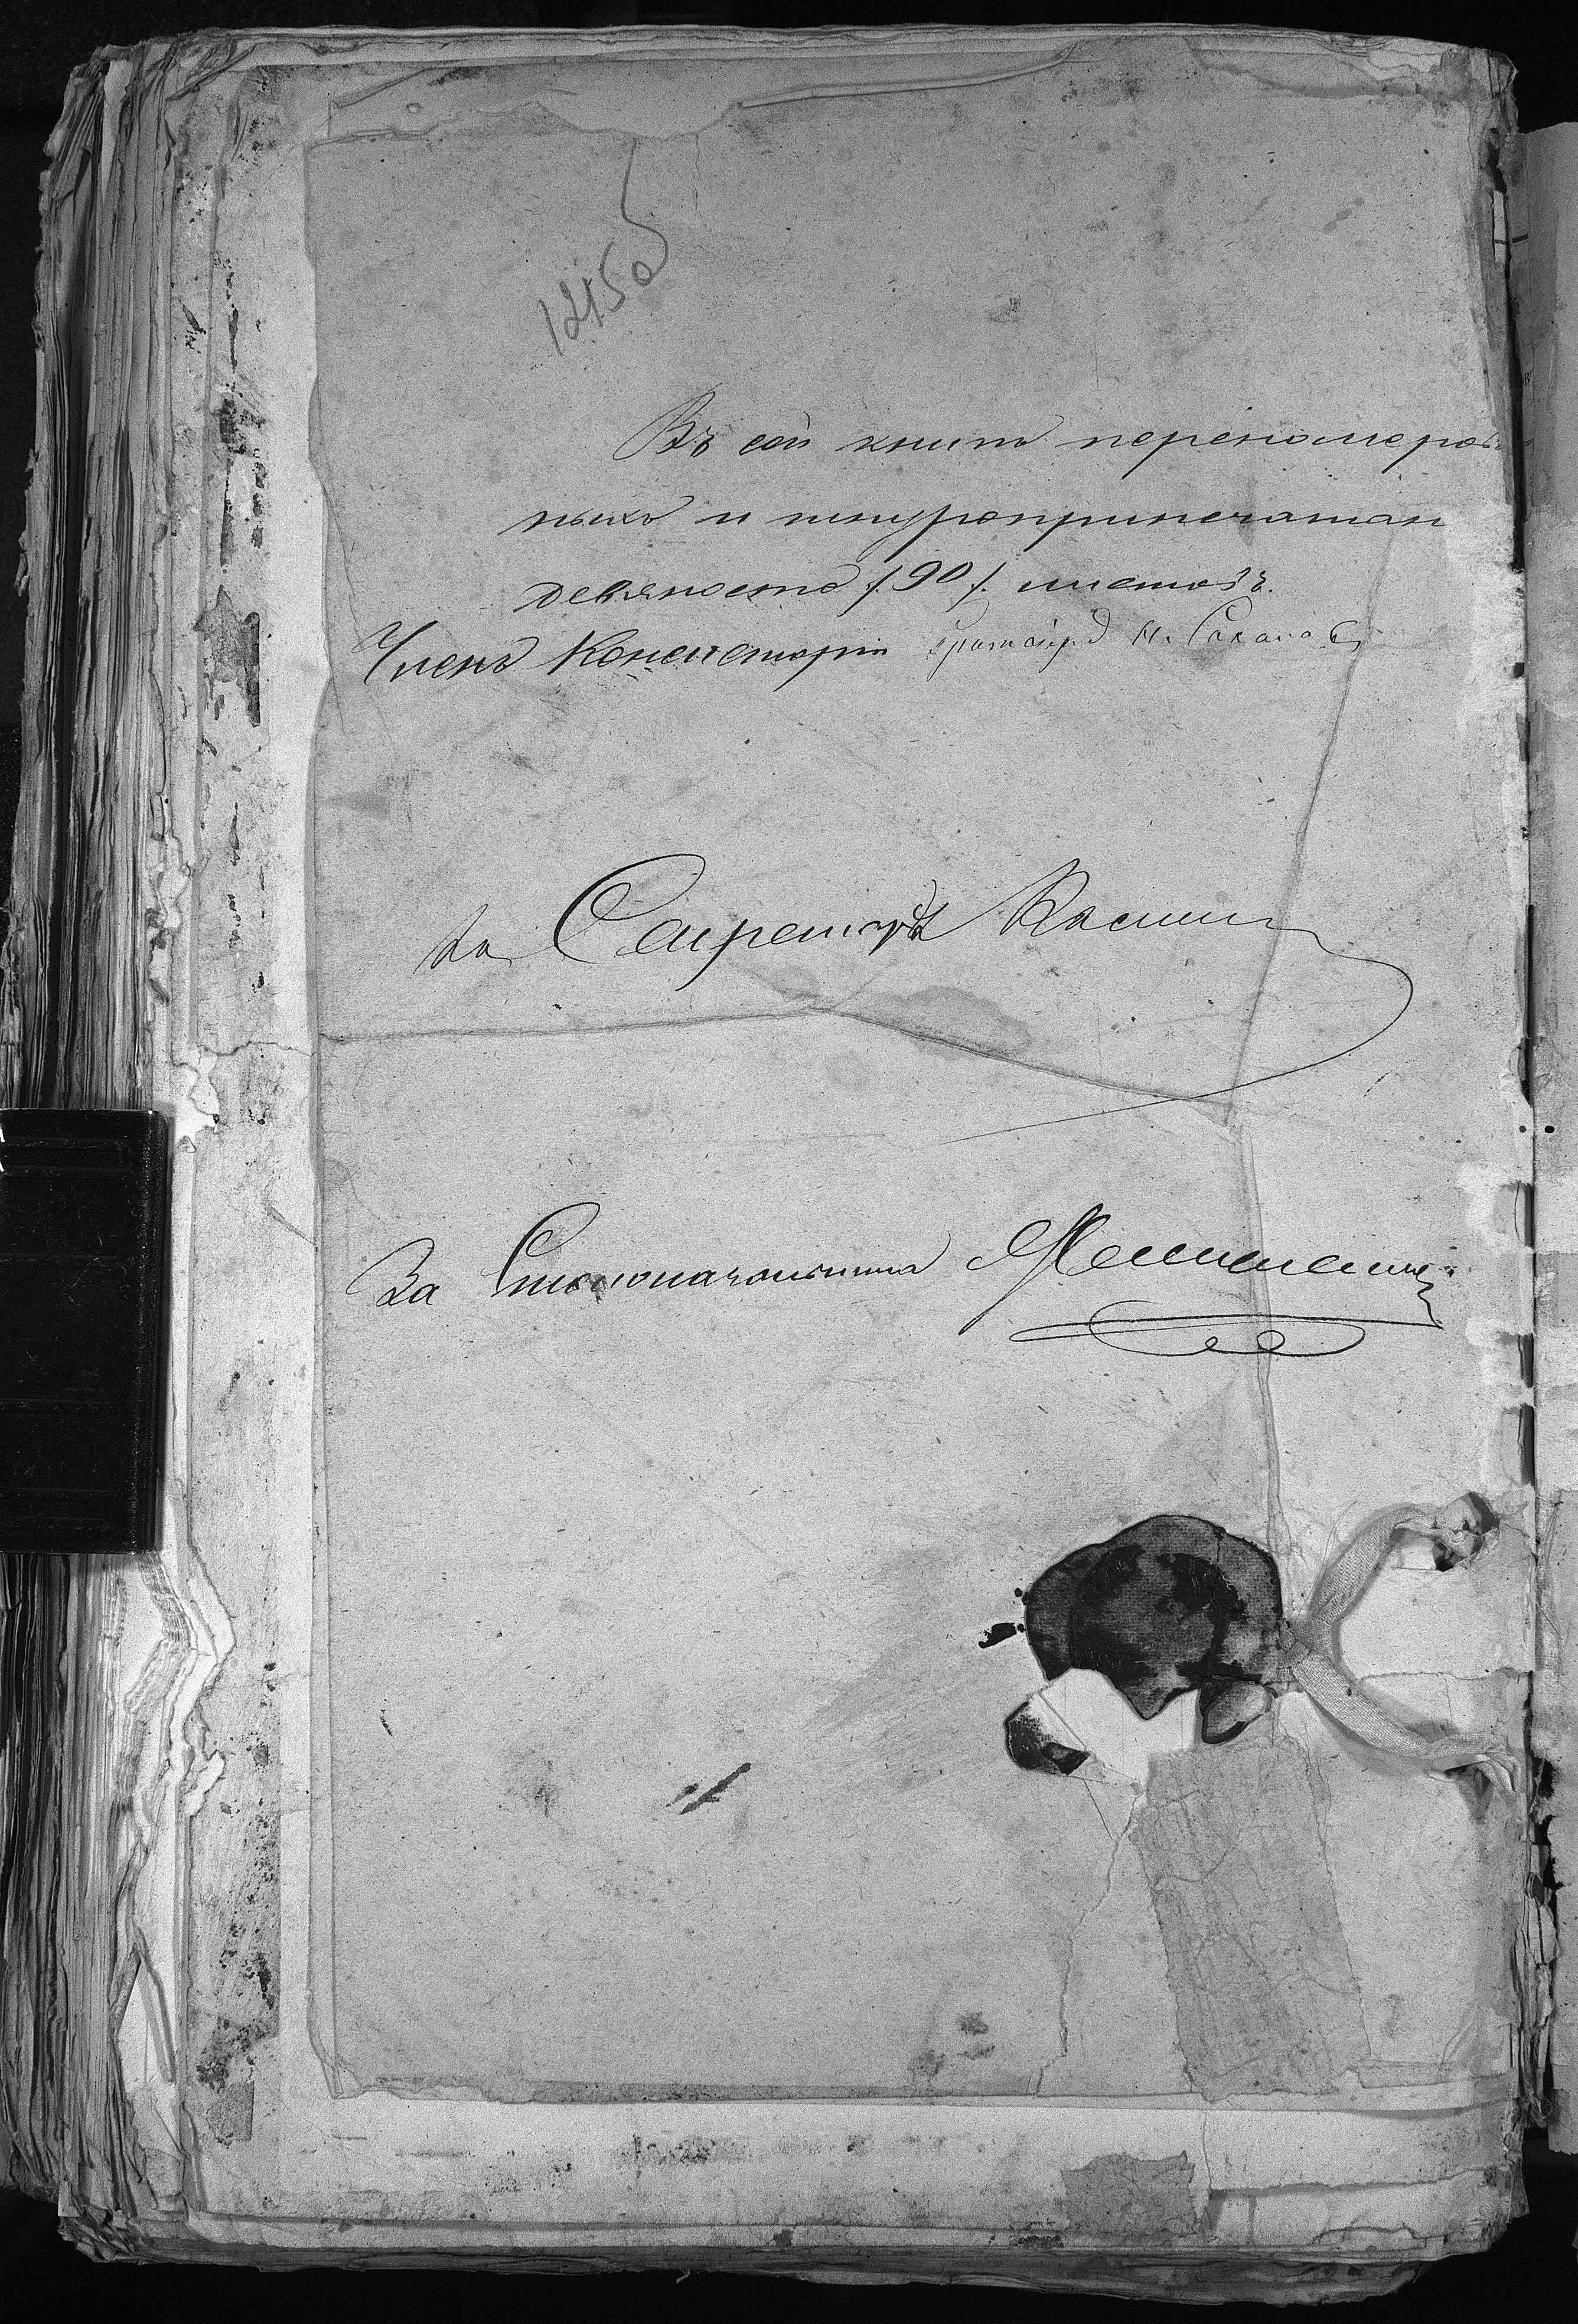 1215
Въ сей книгѣ перенумерован
ныхъ и шнуроприпечатан
девяносто /.90/. листовъ.
Членъ Консисторіи Протоіерей Н.
За Секретаря
За Столоначальника